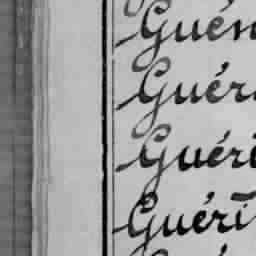 Guén
Guér
Guéri
Guéri